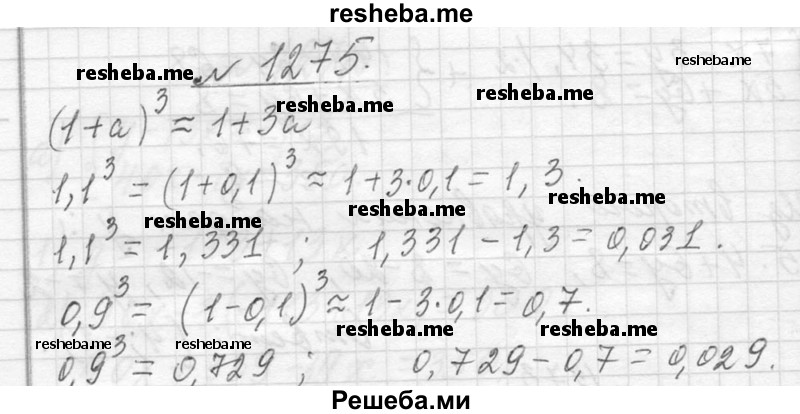 resheba.me
№ 1275.
resheba.me resheba.me
resheba.me resheba.me
(1+a)³ ≈ 1+3a
1,1³ = (1+0,1)³ ≈ 1+3·0,1 = 1,3.
resheba.me resheba.me
1,1³ = 1,331 ; 1,331 − 1,3 = 0,031.
0,9³ = (1−0,1)³ ≈ 1−3·0,1 = 0,7.
resheba.me resheba.me
resheba.me resheba.me
0,9³ = 0,729 ; 0,729 − 0,7 = 0,029.
Решеба.ми